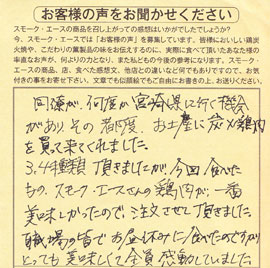 お客様の声をお聞かせください
スモーク・エースの商品を召し上がっての感想はいかがでしたでしょうか?
スモーク・エースでは「お客様の声」を募集しています。皆様においしい鶏炭
火焼や、こだわりの薫製品の味をお伝えするのに、実際に食べて頂いたあなた様の
率直なお声が、何よりの力となり、また私どもの今後の参考になります。スモーク・エ
ースの商品、店、食べた感想文、他店との違いなど何でもありですので、お気
付きの事をお寄せ下さい。文章でも似顔絵でもご自由にお書きの上、お送りください。
同僚が、何度か宮崎県に行く機会
があり その都度 お土産に炭火鶏肉
を買って来てくれました。
3.4種類 頂きましたが 今回 食べた
もの、スモークエースさんの鶏肉が、一番
美味しかったので、注文させて頂きました。
職場の皆でお昼休みに食べたのですが
とっても美味しくて全員感動していました